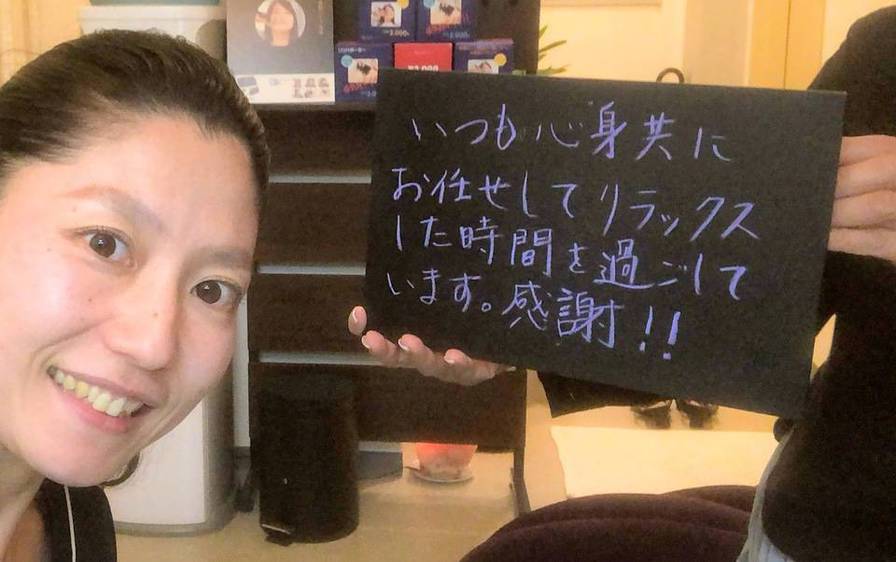 いつも心身共に
お任せしてリラックス
した時間を過ごして
います。感謝!!